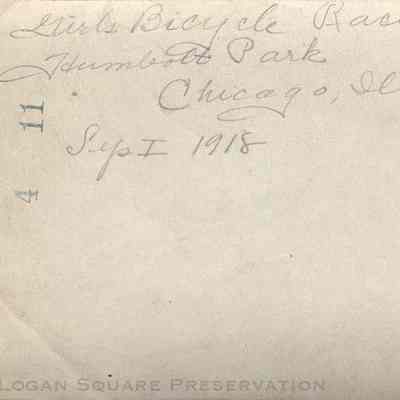 Girls Bicycle Rac
Humbolt Park
Chicago, Il
Sep I 1918
4 11
LOGAN SQUARE PRESERVATION